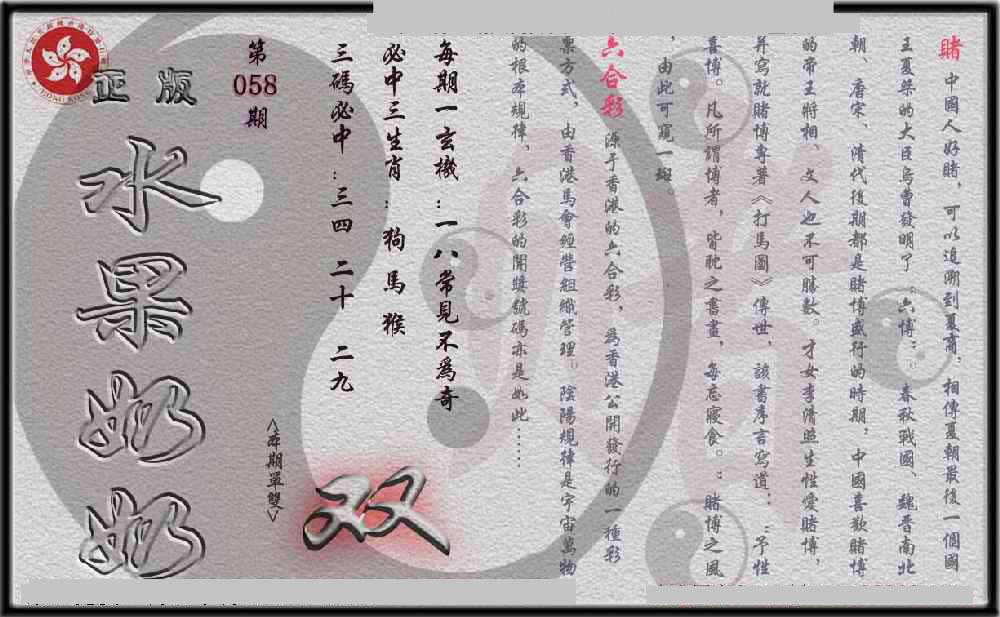 賭 中國人好賭，可以追溯到夏商，相傳夏朝最後一個國
王夏桀的大臣烏曹發明了“六博”；春秋戰國、魏晉南北
朝、唐宋、清代後期都是賭博盛行的時期，中國喜歡賭博
的帝王將相、文人也不可勝數。才女李清照生性愛賭博，
并寫就賭博專著《打馬圖》傳世，該書序言寫道：“予性
喜博。凡所謂博者，皆耽之晝畫，每忘寢食。”賭博之風
，由此可窺一斑。
六合彩 源于香港的六合彩，為香港公開發行的一種彩
票方式，由香港馬會經營組織管理。陰陽規律是宇宙萬物
的根本規律，六合彩的開獎號碼亦是如此……
每期一玄機：一八常見不為奇
必中三生肖：狗 馬 猴
三碼必中：三四 二十 二九
第
058
期
<本期單雙>
双
正版
水果奶奶